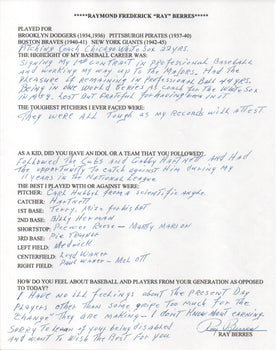 *****RAYMOND FREDERICK "RAY" BERRES*****
PLAYED FOR
BROOKLYN DODGERS (1934,1936) PITTSBURGH PIRATES (1937-40)
BOSTON BRAVES (1940-41) NEW YORK GIANTS (1942-45)
Pitching Coach Chicago White Sox 22 yrs.
THE HIGHLIGHT OF MY BASEBALL CAREER WAS:
Signing my 1st contract in professional Baseball
and working my way up to the Majors. Had the
pleasure of remaining in Professional Ball 44 yrs.
Being in one World Series as Coach for the White Sox
in 1959.
THE TOUGHEST PITCHERS I EVER FACED WERE:
They were all Tough as my records will attest
AS A KID, DID YOU HAVE AN IDOL OR A TEAM THAT YOU FOLLOWED?
Followed The Cubs and Gabby Hartnett And Had
the opportunity to catch against Him during my
11 years in the National League
THE BEST I PLAYED WITH OR AGAINST WERE:
PITCHER: Carl Hubbell from a scientific angle.
CATCHER: Hartnett
1ST BASE: Terry, Mize for his bat
2ND BASE: Billy Herman
SHORTSTOP: Peewee Reese - Marty Marion
3RD BASE: Pie Traynor
LEFT FIELD: Medwick
CENTERFIELD: Lloyd Waner
RIGHT FIELD: Paul Waner - Mel Ott
HOW DO YOU FEEL ABOUT BASEBALL AND PLAYERS FROM YOUR GENERATION AS OPPOSED
TO TODAY?
I Have no ill feelings about the Present Day
Players other than some gripe too much for the
"Change" They are making - I don't Know about earning
Sorry to know of you being disabled
and want to Wish the Best For you
Ray Berres
RAY BERRES